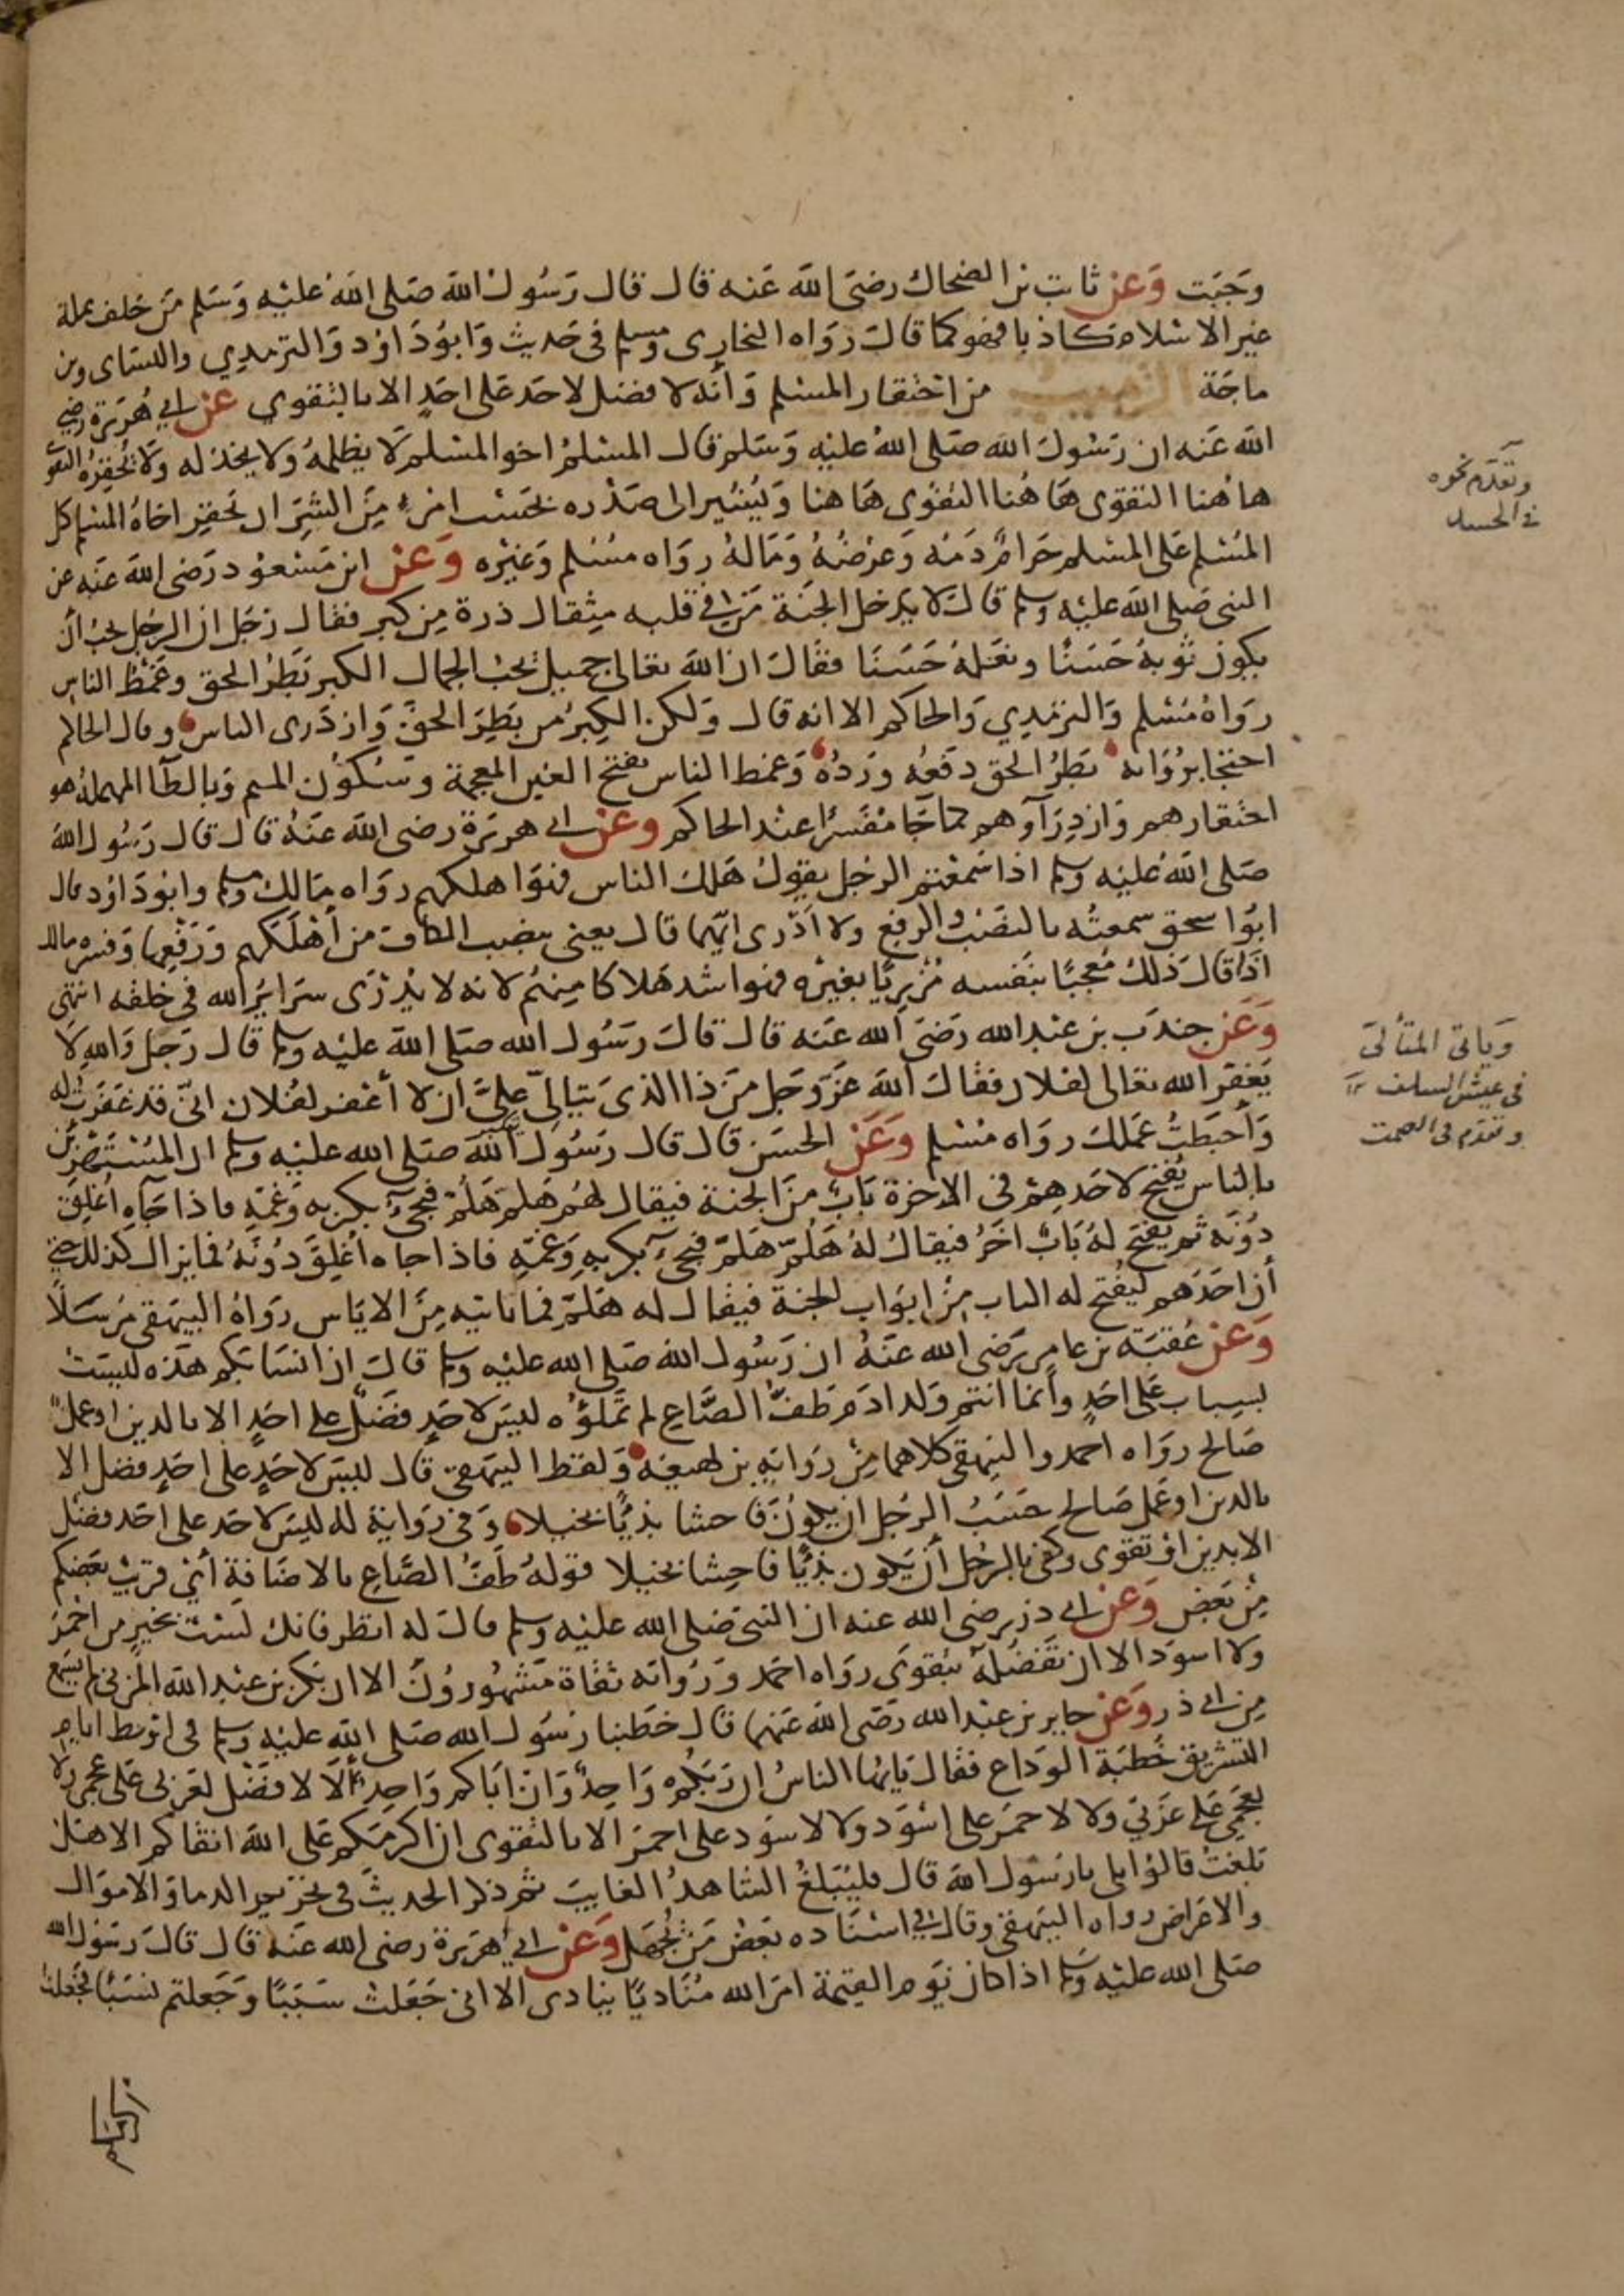 وجبت وعن ثابت بن الضحاك رضى الله عنه قال قال رسول الله صلى الله عليه وسلم من خلف بملة
غير الاسلام كاذبا فهو كما قال رواه البخارى ومسلم فى حديث وابو داود والترمذي والنساى وبن
ماجة الترهيب من احتقار المسلم وأنه لا فضل لاحد على احد الا بالتقوي عن ابي هريرة رضي
الله عنه ان رسول الله صلى الله عليه وسلم قال المسلم اخو المسلم لا يظلمه ولا يخذله ولا يحقره التقوى
وتقدم نحوه
فى الحسد
هاهنا التقوى هاهنا التقوى هاهنا ويشير الى صدره بحسب امرء من الشر ان يحقر اخاه المسلم كل
المسلم على المسلم حرام دمه وعرضه وماله رواه مسلم وغيره وعن ابن مسعود رضى الله عنه عن
النبى صلى الله عليه وسلم قال لا يدخل الجنة من فى قلبه مثقال ذرة من كبر فقال رجل ان الرجل يحب أن
يكون ثوبه حسنا ونعله حسنا فقال ان الله تعالى جميل يحب الجمال الكبر بطر الحق وغمط الناس
رواه مسلم والترمذي والحاكم الا انه قال ولكن الكبر من بطر الحق وازدرى الناس وقال الحاكم
احتجا برواته بطر الحق دفعه ورده وغمط الناس بفتح الغين المعجمة وسكون الميم وبالطا المهملة هو
احتقارهم وازدرآوهم كما جا مفسرا عند الحاكم وعن ابى هريرة رضى الله عنه قال قال رسول الله
صلى الله عليه وسلم اذا سمعتم الرجل يقول هلك الناس فهو اهلكهم رواه مالك ومسلم وابو داود قال
ابو اسحق سمعته بالنصب والرفع ولا أدرى ايهما قال يعنى بنصب الكاف من أهلكهم ورفعها وفسره مالك
اذا قال ذلك معجبا بنفسه مزريا بغيره فهو اشد هلاكا منهم لانه لا يدرى سراير الله فى خلقه انتهى
وعن جندب بن عبد الله رضى الله عنه قال قال رسول الله صلى الله عليه وسلم قال رجل والله لا
وياتى المتألى
فى عيش السلف
وتقدم فى الصمت
يغفر الله تعالى لفلان فقال الله عز وجل من ذا الذى يتالى على ان لا أغفر لفلان انى قد غفرت له
وأحبطت عملك رواه مسلم وعن الحسن قال قال رسول الله صلى الله عليه وسلم ان المستهزئين
بالناس يفتح لاحدهم فى الاخرة باب من الجنة فيقال لهم هلم هلم فيجىء بكربه وغمه فاذا جآه أغلق
دونه ثم يفتح له باب اخر فيقال له هلم هلم فيجىء بكربه وغمه فاذا جاه أغلق دونه فما يزال كذلك حتى
أن احدهم ليفتح له الباب من ابواب الجنة فيقال له هلم فما ياتيه من الاياس رواه البيهقى مرسلا
وعن عقبة بن عامر رضى الله عنه ان رسول الله صلى الله عليه وسلم قال ان انسابكم هذه ليست
بسباب على احد وأنما انتم ولد ادم طف الصاع لم تملؤه ليس لاحد فضل على احد الا بالدين او عمل
صالح رواه احمد والبيهقى كلاهما من رواية بن لهيعة ولفظ البيهقى قال ليس لاحد على احد فضل الا
بالدين او عمل صالح حسب الرجل ان يكون فاحشا بذيا بخيلا وفى رواية له ليس لاحد على احد فضل
الا بدين او تقوى وكفى بالرجل أن يكون بذيا فاحشا بخيلا قوله طف الصاع بالاضافة أي قريب بعضكم
من بعض وعن ابى ذر رضى الله عنه ان النبى صلى الله عليه وسلم قال له انظر فانك لست بخير من احمر
ولا اسود الا ان تفضله بتقوى رواه احمد ورواته ثقاة مشهورون الا ان بكر بن عبد الله المزنى لم يسمع
من ابى ذر وعن جابر بن عبد الله رضى الله عنهما قال خطبنا رسول الله صلى الله عليه وسلم فى اوسط ايام
التشريق خطبة الوداع فقال يايها الناس ان ربكم واحد وان اباكم واحد ألا لا فضل لعربى على عجمى ولا
لعجمى على عربى ولا لاحمر على اسود ولا لاسود على احمر الا بالتقوى ان اكرمكم على الله اتقاكم الا هل
بلغت قالوا بلى يا رسول الله قال فليبلغ الشاهد الغايب ثم ذكر الحديث فى تحريم الدما والاموال
والاعراض رواه البيهقى وقال فى اسناده بعض من يجهل وعن ابي هريرة رضى الله عنه قال قال رسول الله
صلى الله عليه وسلم اذا كان يوم القيمة امر الله مناديا ينادى الا انى جعلت سببا وجعلتم نسبا فجعلت